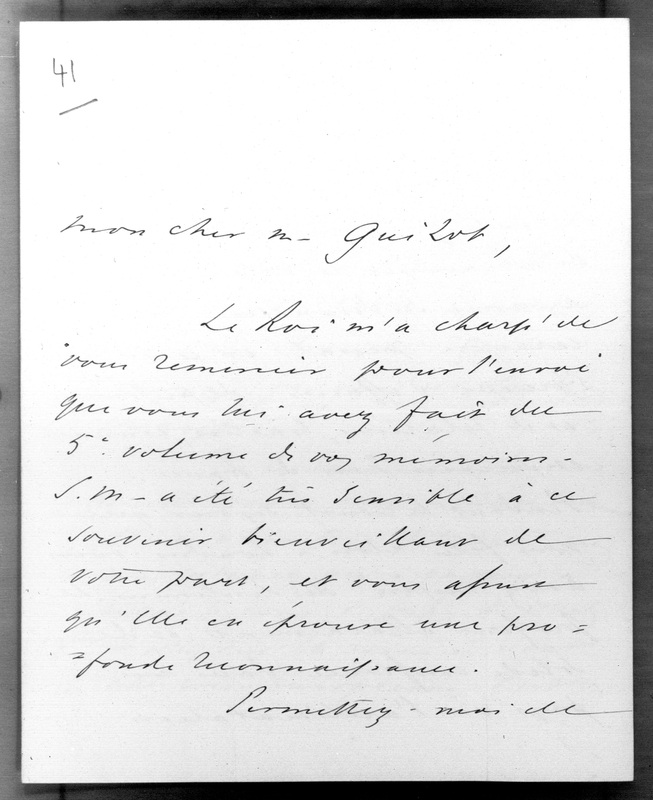 41
mon cher m - Guizot,
Le Roi m'a chargé de
vous remercier pour l'envoi
que vous lui avez fait du
5e volume de vos mémoires -
S. M - a été très sensible à ce
souvenir bienveillant de
votre part, et vous assure
qu'elle en éprouve une pro=
=fonde reconnaissance.
Permettez - moi de